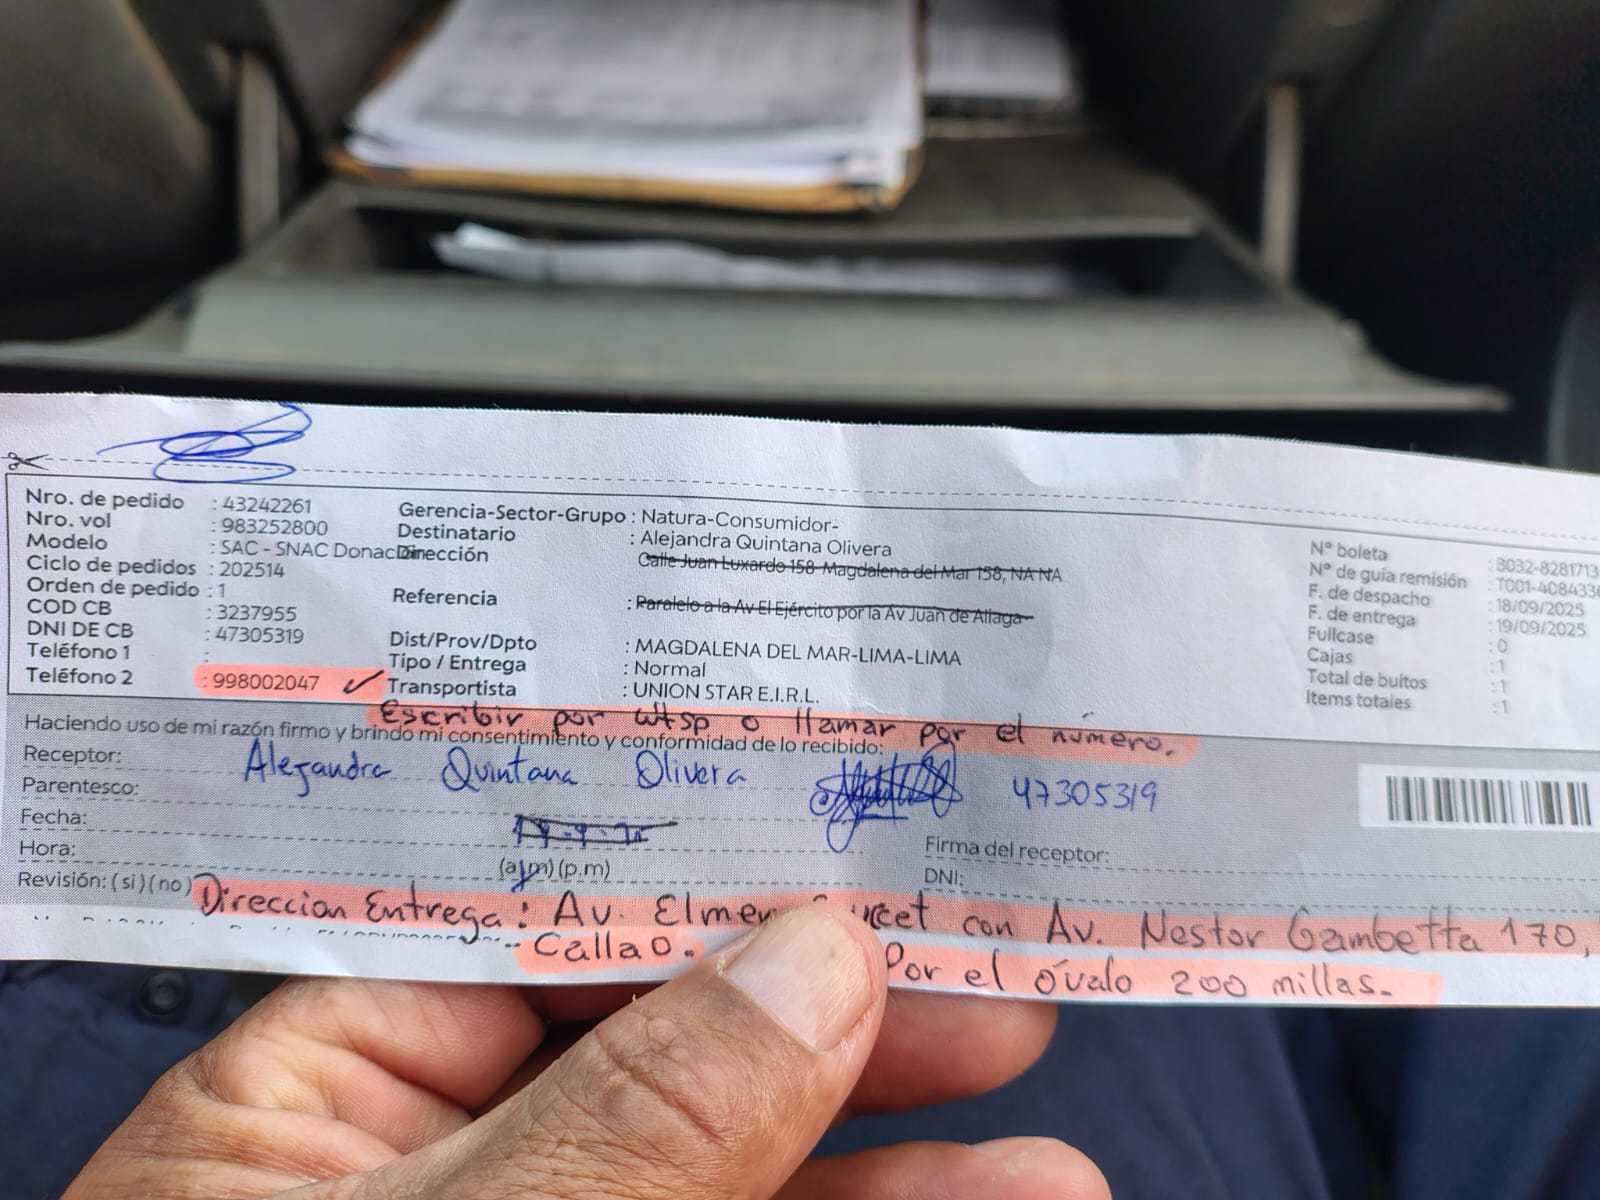 Nro. de pedido : 43242261
Nro. vol : 983252800
Modelo : SAC - SNAC
Ciclo de pedidos : 202514
Orden de pedido : 1
COD CB : 3237955
DNI DE CB : 47305319
Teléfono 1 :
Teléfono 2 : 998002047
Gerencia-Sector-Grupo : Natura-Consumidor-
Destinatario : Alejandra Quintana Olivera
Dirección : Calle Juan Luxardo 158 Magdalena del Mar 158, NA NA
Referencia : Paralelo a la Av El Ejército por la Av Juan de Aliaga
Dist/Prov/Dpto : MAGDALENA DEL MAR-LIMA-LIMA
Tipo / Entrega : Normal
Transportista : UNION STAR E.I.R.L.
N° boleta : B032-8281713
N° de guía remisión : T001-4084336
F. de despacho : 18/09/2025
F. de entrega : 19/09/2025
Fullcase : 0
Cajas : 1
Total de bultos : 1
Items totales : 1
Escribir por wtsp o llamar por el número.
Haciendo uso de mi razón firmo y brindo mi consentimiento y conformidad de lo recibido:
Receptor: Alejandra Quintana Olivera 47305319
Parentesco:
Fecha:
Hora: (a.m) (p.m)
Firma del receptor:
DNI:
Revisión: (si) (no)
Direccion Entrega: Av. con Av. Nestor Gambetta 170,
Callao. Por el óvalo 200 millas.